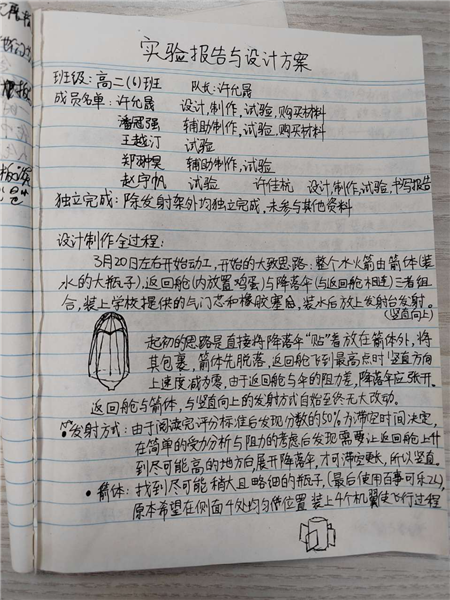 实验报告与设计方案
班级:高二(6)班 队长:许允晟
成员名单:许允晟 设计,制作,试验,购买材料
潘冠强 辅助制作,试验,购买材料
王越汀 试验
郑翀昊 辅助制作,试验
赵宇帆 试验 许佳杭 设计,制作,试验,书写报告
独立完成:除发射架外均独立完成,未参与其他资料
设计制作全过程:
3月20日左右开始动工,开始的大致思路:整个水火箭由箭体(装
水的大瓶子),返回舱(内放置鸡蛋)与降落伞(与返回舱相连)三者组
合,装上学校提供的气门芯和橡胶塞后,装水后放上发射台发射。
(竖直向上)
起初的思路是直接将降落伞“贴”着放在箭体外,将
其包裹,箭体先脱落,返回舱飞到最高点时竖直方向
上速度减为零,由于返回舱与伞的阻力差,降落伞应张开。
返回舱与箭体,与竖直向上的发射方式自始至终无大改动。
发射方式:由于阅读完评分标准后发现分数的50%为滞空时间决定,
在简单的受力分析与阻力的考虑后发现需要让返回舱上升
到尽可能高的地方后展开降落伞,才可滞空更长,所以竖直。
·箭体:找到尽可能稍大且略细的瓶子,(最后使用百事可乐2L),
原本希望在侧面4处均匀位置装上4个机翼使飞行过程